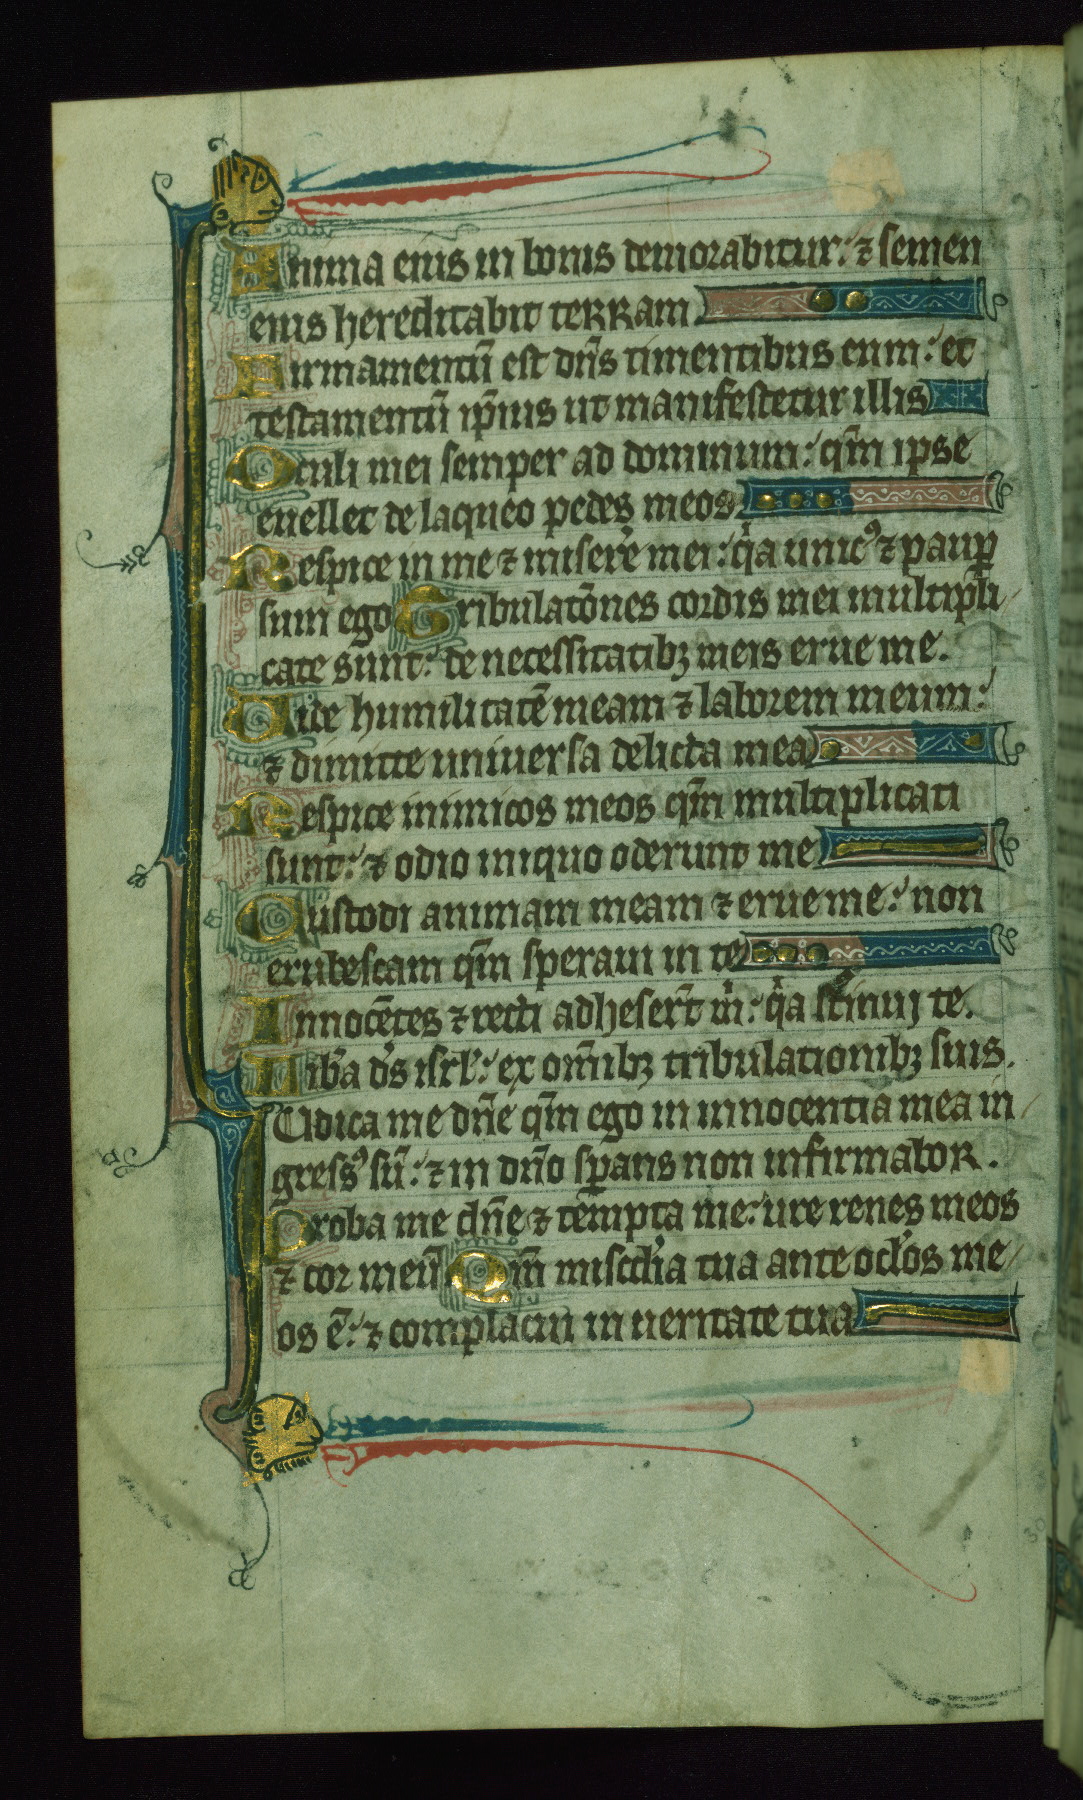 Anima eius in bonis demorabitur: ⁊ semen
eius hereditabit terram
Firmamentū est dn̄s timentibus eum: et
testamentū ip̄ius ut manifestetur illis
Oculi mei semper ad dominum: qm̄ ipse
euellet de laqueo pedes meos
Respice in me ⁊ misere mei: qͣa unicꝰ ⁊ paup̲
sum ego Tribulatōnes cordis mei multipli
cate sunt: de necessitatibꝫ meis erue me.
Uide humilitatē meam ⁊ laborem meum:
⁊ dimitte uniuersa delicta mea
Respice inimicos meos qm̄ multiplicati
sunt: ⁊ odio iniquo oderunt me
Custodi animam meam ⁊ erue me: non
erubescam qm̄ speraui in te
Innocētes ⁊ recti adheserт̄ m̄: qͣa sti̅nuj te.
Liba ds̄ isrl̄: ex om̄ibꝫ tribulationibꝫ suis.
Iudica me dn̄e qm̄ ego in innocentia mea in
gressꝰ sū: ⁊ in dn̄o sꝑans non infirmabor.
Proba me dn̄e ⁊ tempta me: ure renes meos
⁊ cor meū Qm̄ miscd̄ia tua ante oclos me
os ē: ⁊ complacui in ueritate tua
30